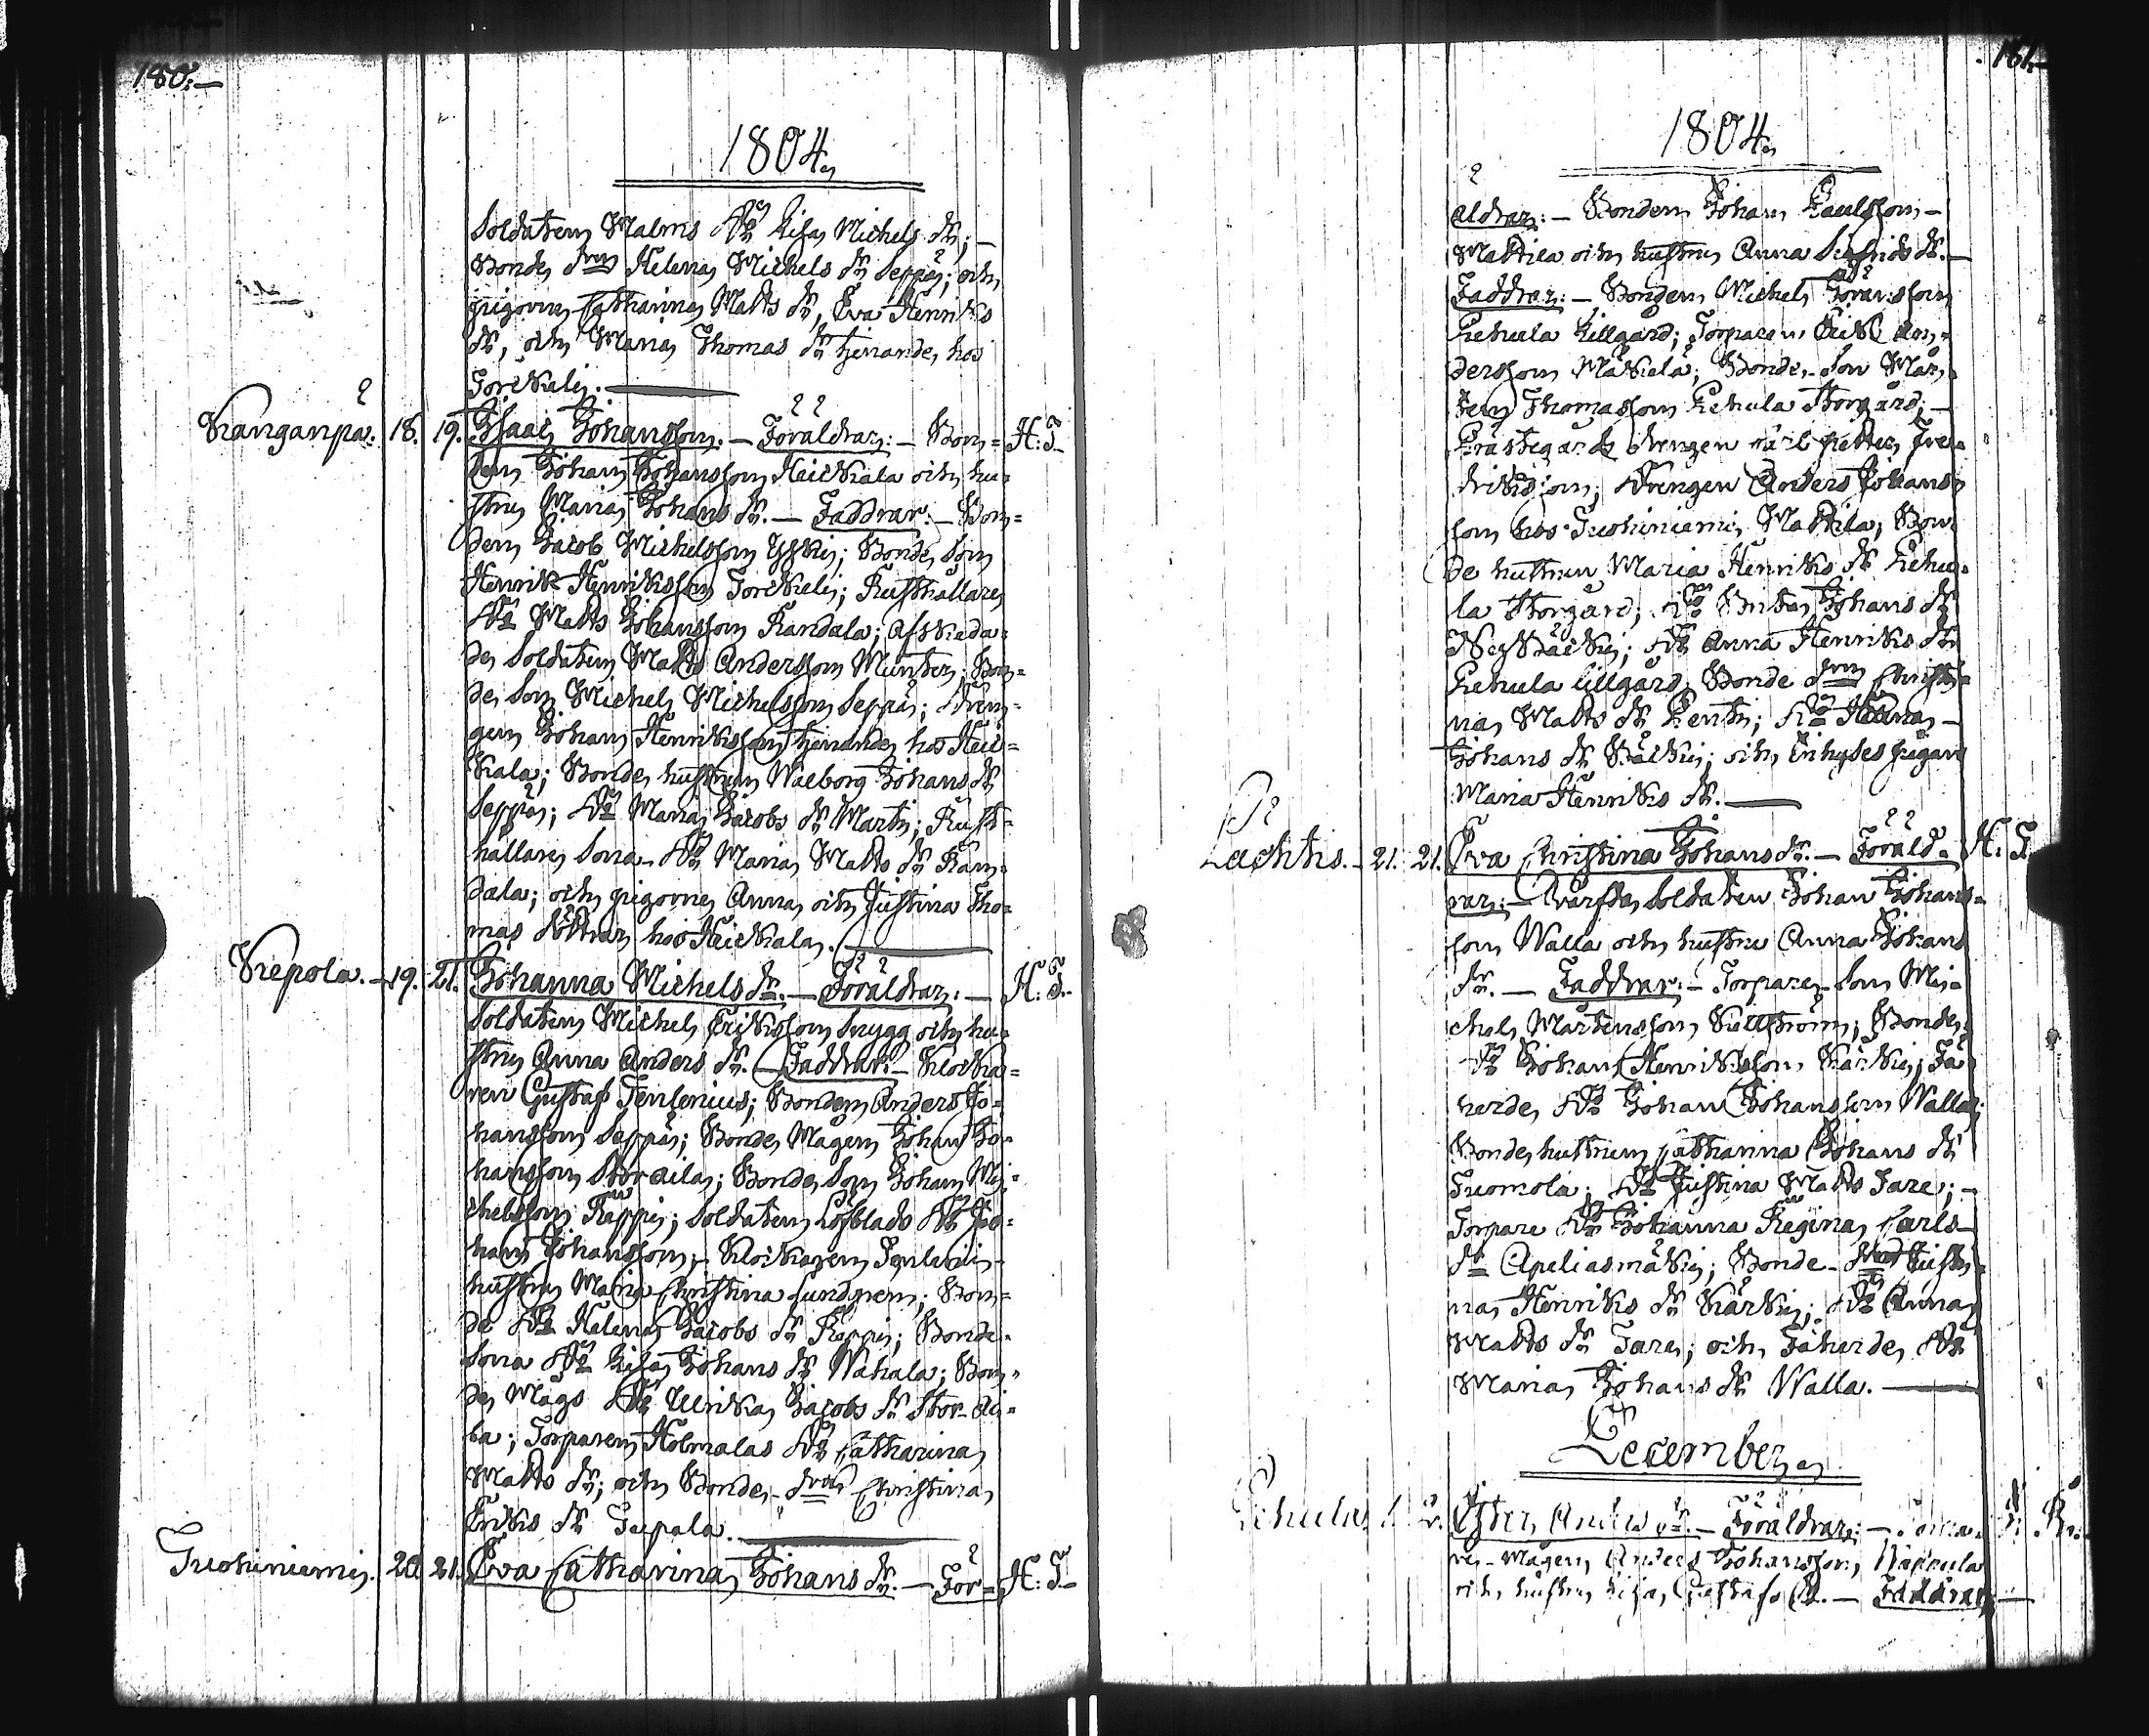 180.
1804.
Soldatens Malms D:o Lisa Michels dr; —
Bonde dren Helena Michels dr Seppä; och
pigorna Catharina Matts dr, Eva Henriks
dr, och Maria Thomas dr tjenande hos
Torckeli. —
Kanganpä. 18. 19. Isaac Johansson. — Föräldrar: — Bon= H. T.
den Johan Johansson Heickala och hu=
stru Maria Johans dr. — Faddrar: — Bon=
den Jacob Michelsson Yski; Bonde Son
Henrik Henriksson Torckeli; Rusthållare
D:o Matts Johansson Randala; afskeda=
de Soldaten Matts Andersson Munter; Bon=
de Son Michel Michelsson Seppä; Dren=
gen Johan Henriksson tjenande hos Heic=
kala; Bonde hustrun Walborg Johans dr
Seppä; D:o Maria Jacobs dr Marti; Rust=
hållare Sona D:o Maria Matts dr Ran=
dala; och pigorna Anna och Justina Tho=
mas döttrar hos Heickala. —
Krepola. — 19. 21. Johanna Michels dr. — Föräldrar: — H. T.
Soldaten Michel Eriksson Snygg och hu=
stru Anna Anders dr. — Faddrar: — Klocka=
ren Gustaf Tenlenius; Bonden Anders Jo=
hansson Seppä; Bonde Mågen Johan Jo=
hansson Storaila; Bonde Son Johan Mi=
chelsson Räppi; Soldaten Löfblads D:o Jo=
han Johansson; Klockaren Tenlenii
hustru Maria Christina Lundgren; Bon=
de D:o Helena Jacobs dr Räppi; Bonde
Sona D:o Lisa Johans dr Wahala; Bon=
de Mågs D:o Ulrika Jacobs dr Stor=ai=
la; Torparen Holmalas D:o Catharina
Matts dr; och Bonde dren Christina
Eriks dr Tupala. —
Tuohiniemi. 20. 21. Eva Catharina Johans dr. — För= H. T.
181.
1804.
äldrar: — Bonden Johan Paulsson —
Mattila och hustru Anna Sigfrids dr. —
Faddrar: — Bonden Michel Göransson
Lehula Lillgård; Torparen Erik An=
dersson Mäkelä; Bonde Son Mår=
ten Thomasson Lehula Storgård; —
Prästegårds drengen Carl Petter Fre=
driksson; Drengen Anders Johans=
son hos Tuohiniemi Mattila; Bon=
de hustrun Maria Henriks dr Lehu=
la Storgård; D:o Brita Johans dr
Bäcki; D:o Anna Henriks dr
Lehula Lillgård; Bonde dren Christi=
na Matts dr Pentti; D:o Helena —
Johans dr Bäcki; och Inhyses pigan
Maria Henriks dr. —
Lachtis. — 21. 21. Eva Christina Johans dr. — Föräld= H. T.
rar: — Wärfda Soldaten Johan Johans=
son Walla och hustru Anna Johans
dr. — Faddrar: — Torpare Son Mi=
chel Mårtensson Kullström; Bonde
D:o Johan Henriksson Kärki; Fä=
herde D:o Johan Johansson Walla;
Bonde hustrun Catharina Johans dr
Tuomola; D:o Justina Matts Tare; —
Torpare D:o Johanna Regina Carls
dr Apeliasmäki; Bonde dren Justi=
na Henriks dr Kärki; D:o Anna
Matts dr Tare; och Fäherde D:o
Maria Johans dr Walla. —
December.
Lehula 1. 2. Ester Anders dr. — Föräldrar: — Torpa=
re Mågen Anders Johansson Näppilä
och hustru Lisa Gustafs dr. — Faddrar: —